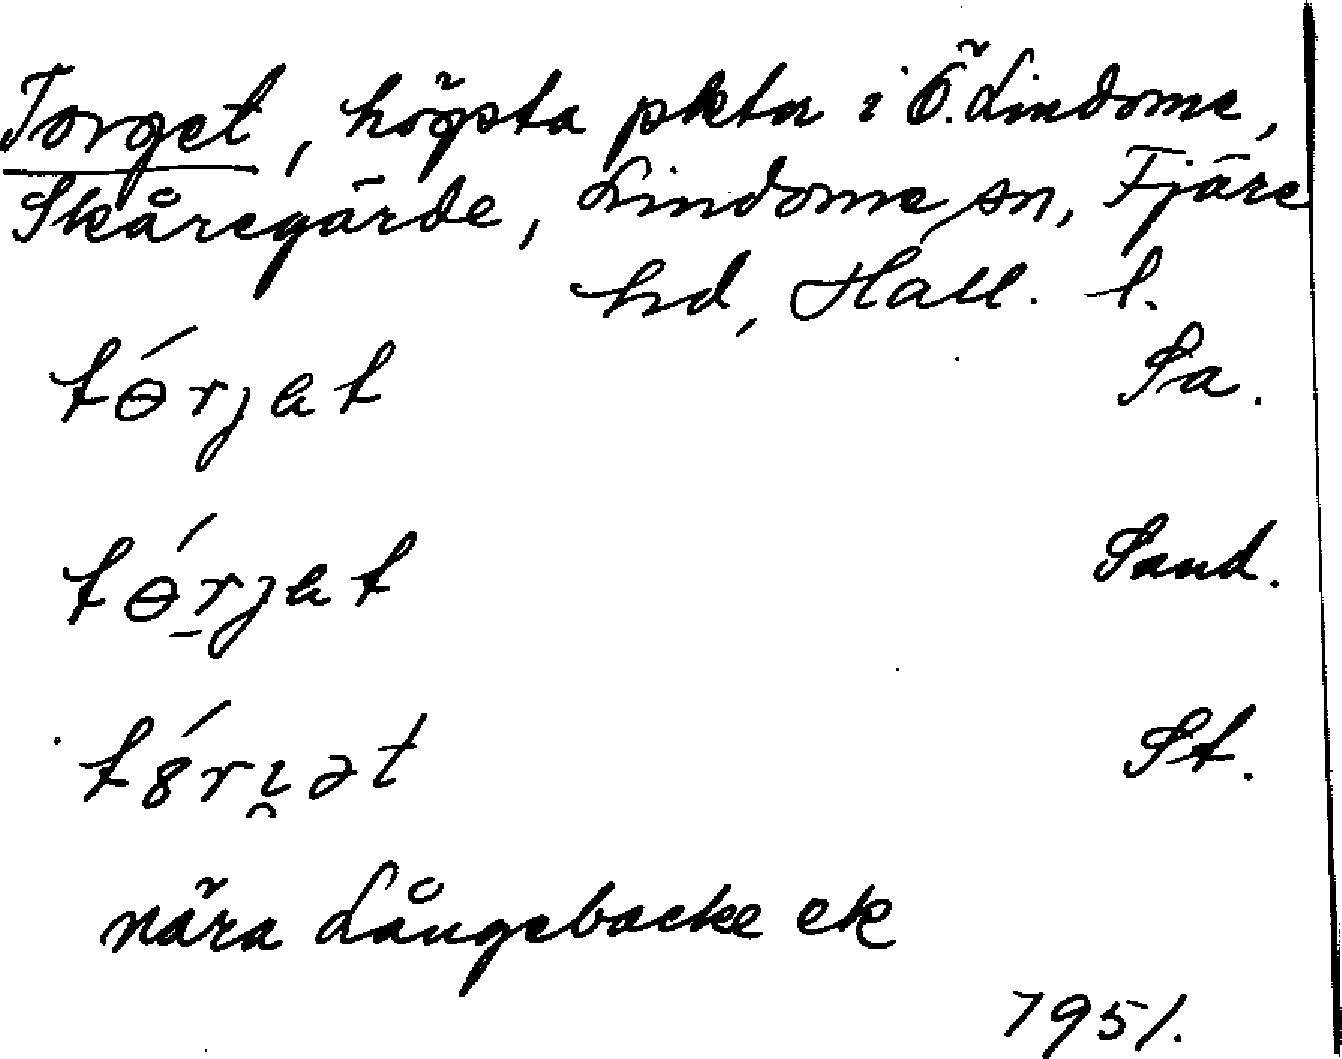 Torget, högsta pktn i Ö. Lindome,
Skåregärde, Lindome sn, Fjäre
hd, Hall. l.
tɵ́rjat Sa.
tɵ́r̠jat Sand.
t8́ri̯ət St.
nära Långebacke ek
1951.